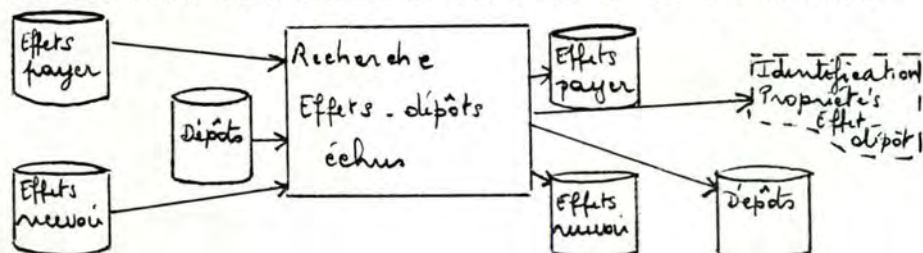 Effets
payer
Dépôts
Effets
recevoir
Recherche
Effets - dépôts
échus
Effets
payer
Effets
recevoir
Dépôts
Identification
Propriétés
Effet
dépôt